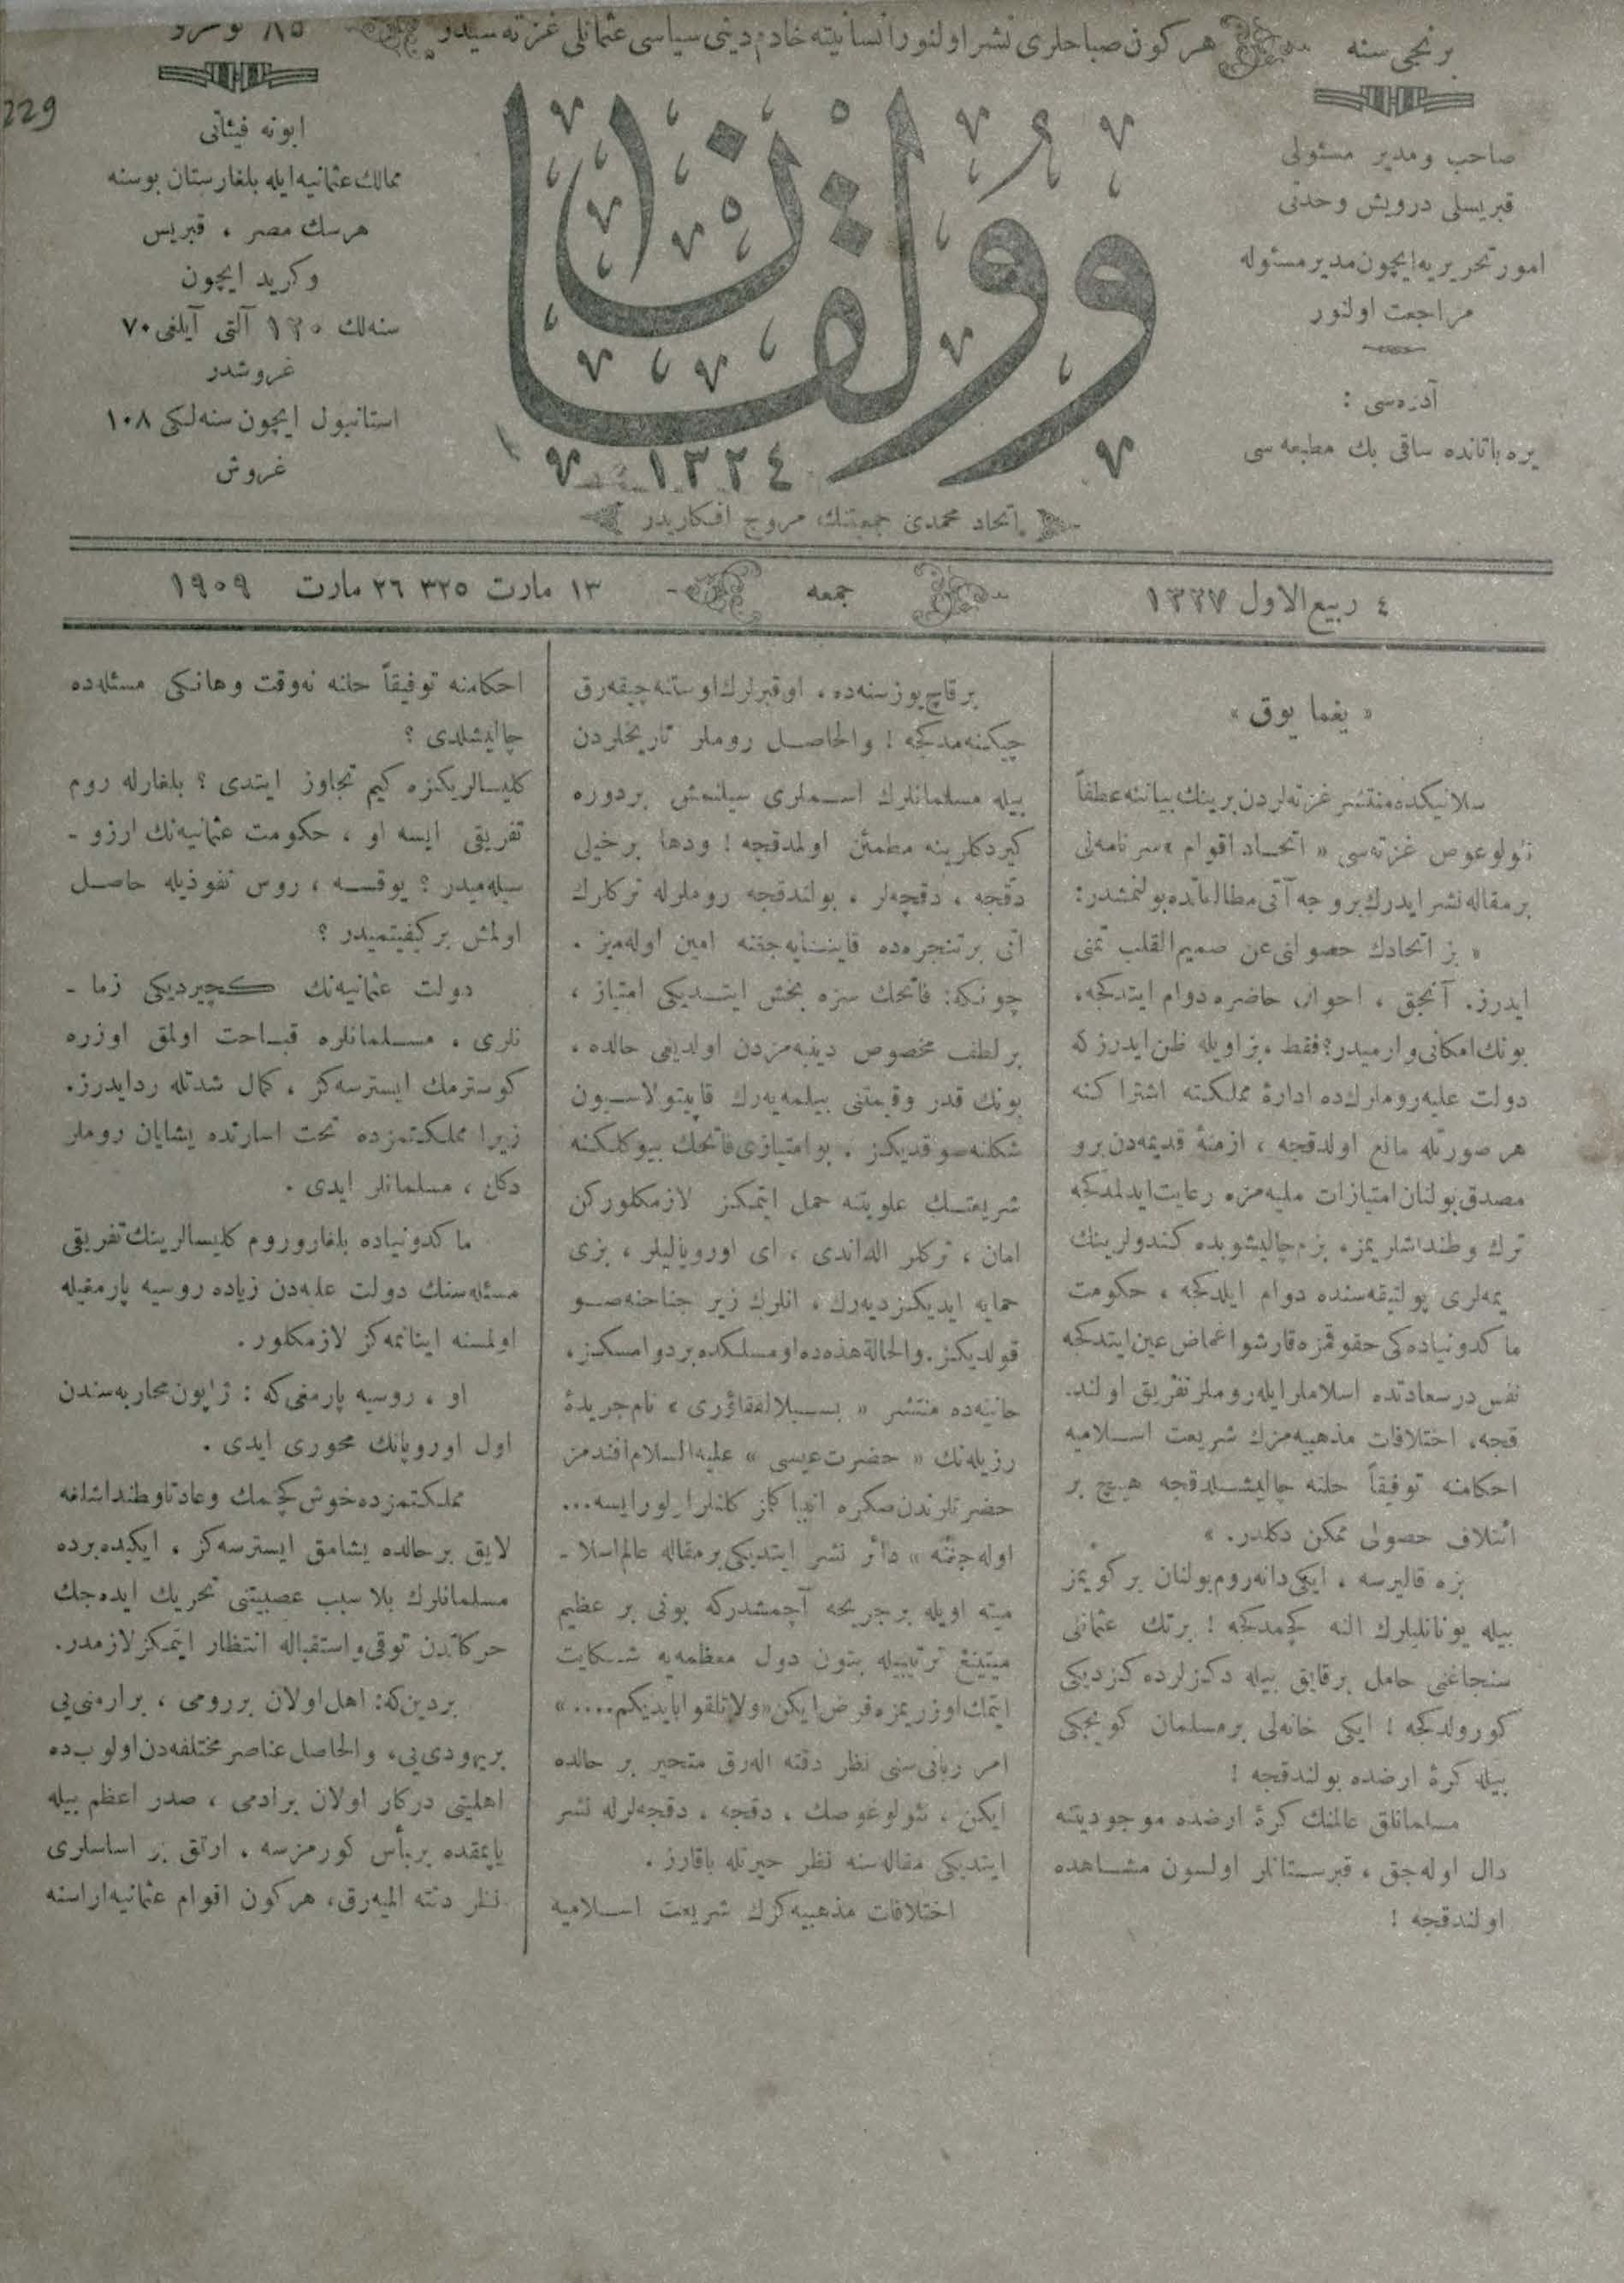 برنجی سنه
هر کون صباحلری نشر اولنور انسانیته خادم دینی سیاسی عثمانلی غزته سیدر
٨٥ نومرو
229
صاحب و مدیر مسئولی
قبریسلی درویش وحدتی
امور تحریریه ایچون مدیر مسئوله
مراجعت اولنور
آدرەسی :
یره باتانده ساقی بك مطبعه سی
وولقان
١٣٢٤
اتحاد محمدی جمعیتنك مروج افکاریدر
ابونه فیئاتی
ممالك عثمانیه ایله بلغارستان بوسنه
هرسك مصر ، قبریس
و کرید ایچون
سنه لك ١٢٠ آلتی آیلغی ٧٠
غروشدر
استانبول ایچون سنه لکی ١٠٨
غروش
٤ ربیع الاول ١٣٢٧
جمعه
١٣ مارت ٣٢٥ ٢٦ مارت ١٩٠٩
« یغما یوق »
سلانیکده منتشر غزته لردن برینك بیاننه عطفاً
نئولوغوس غزته سی « اتحاد اقوام » سرنامه لی
بر مقاله نشر ایدرك بروجه آتی مطالباتده بولنمشدر :
« بز اتحادك حصولنی عن صمیم القلب تمنی
ایدرز. آنجق ، احوال حاضره دوام ایتدکجه ،
بونك امکانی وارمیدر؟ فقط ، بز اویله ظن ایدرز که
دولت علیه روملرك ده ادارۀ مملکته اشتراکنه
هر صورتله مانع اولدقجه ، ازمنۀ قدیمه دن برو
مصدق بولنان امتیازات ملیه مزه رعایت ایدلمدکجه
ترك وطنداشلریمز ، بزم چالیشوبده کندولرینك
یمه لری پولتیقه سنده دوام ایلدکجه ، حکومت
ماکدونیاده کی حقوقمزه قارشو اغماض عین ایتدکجه
نفس درسعادتده اسلاملر ایله روملر تفریق اولند.
قجه ، اختلافات مذهبیه مزك شریعت اسلامیه
احکامنه توفیقاً حلنه چالیشلدقجه هیچ بر
ائتلاف حصولی ممکن دکلدر. »
بزه قالیرسه ، ایکی دانه روم بولنان بر کویمز
بیله یونانلیلرك النه کچمدکجه ! برتك عثمانلی
سنجاغنی حامل بر قایق بیله دکزلرده کزدیکی
کورولدکجه ! ایکی خانه لی بر مسلمان کویجکی
بیله کرۀ ارضده بولندقجه !
مسلمانلق عالمنك کرۀ ارضده موجودیتنه
دال اوله جق ، قبرستانلر اولسون مشاهده
اولندقجه !
بر قاچ یوز سنه ده ، او قبرلرك اوستنه چیقه رق
چیکنه مدکجه ! والحاصل روملر تاریخلردن
بیله مسلمانلرك اسملری سیلنمش بر دوره
کیردکلرینه مطمئن اولمدقجه ! ودها بر خیلی
دقجه ، دقجه لر ، بولندقجه روملرله ترکلرك
اتی بر تنجره ده قاینایه جغنه امین اوله میز .
چونکه : فاتحك سزه بخش ایتدیکی امتیاز ،
بر لطف مخصوص دینیه مزدن اولدیغی حالده ،
بونك قدر وقیمتنی بیلمه یه رك قاپیتولاسیون
شکلنه صوقدیکز . بو امتیازی فاتحك بیوکلکنه
شریعتك علویتنه حمل ایتمکز لازمکلورکن
امان ، ترکلر الداندی ، ای اوروپالیلر ، بزی
حمایه ایدیکز دیه رك ، انلرك زیر جناحنه صو
قولدیکز. والحالة هذه ده او مسلکده بردوامسکز ،
حانیه ده منتشر « نام جریدۀ
رزیله نك « حضرت عیسی » علیه السلام افندمز
حضرتلرندن صکره انبیا
اوله جغنه » دائر نشر ایتدیکی بر مقاله عالم اسلا -
میته اویله بر جریحه آچمشدر که بونی بر عظیم
میتینغ ترتیبیله بتون دول معظمه یه شکایت
ایتمك اوزریمزه فرض ایکن « ولا تلقوا بایدیکم .... »
امر ربانی سنی نظر دقته اله رق متحیر بر حالده
ایکن ، نئولوغوسك ، دقجه ، دقجه لرله نشر
ایتدیکی مقاله سنه نظر حیرتله باقارز .
اختلافات مذهبیه کزك شریعت اسلامیه
احکامنه توفیقاً حلنه نه وقت وهانکی مسئله ده
چالیشلدی ؟
کلیسالریکزه کیم تجاوز ایتدی ؟ بلغارله روم
تفریقی ایسه او ، حکومت عثمانیه نك ارزو -
سیله میدر ؟ یوقسه ، روس نفوذیله حاصل
اولمش بر کیفیتمیدر ؟
دولت عثمانیه نك کچیردیکی زما -
نلری ، مسلمانلره قباحت اولمق اوزره
کوسترمك ایسترسه کز ، کمال شدتله رد ایدرز.
زیرا مملکتمزده تحت اسارتده یشایان روملر
دکل ، مسلمانلر ایدی .
ماکدونیاده بلغار و روم کلیسالرینك تفریقی
مسئله سنك دولت علیه دن زیاده روسیه پارمغیله
اولمسنه اینانمه کز لازمکلور.
او ، روسیه پارمغی که : ژاپون محاربه سندن
اول اوروپانك محوری ایدی .
مملکتمزده خوش کچنمك وعادتا وطنداشلغه
لایق بر حالده یشامق ایسترسه کز ، ایکیده برده
مسلمانلرك بلا سبب عصبیتنی تحریك ایده جك
حرکاتدن توقی و استقباله انتظار ایتمکز لازمدر.
بر دین که : اهل اولان بر رومی ، بر ارمنی یی
بر یهودی یی ، والحاصل عناصر مختلفه دن اولوب ده
اهلیتی درکار اولان بر ادمی ، صدر اعظم بیله
یاپمقده بر بأس کورمزسه ، ارتق بز اساسلری
نظر دقته المیه رق ، هر کون اقوام عثمانیه اراسنه